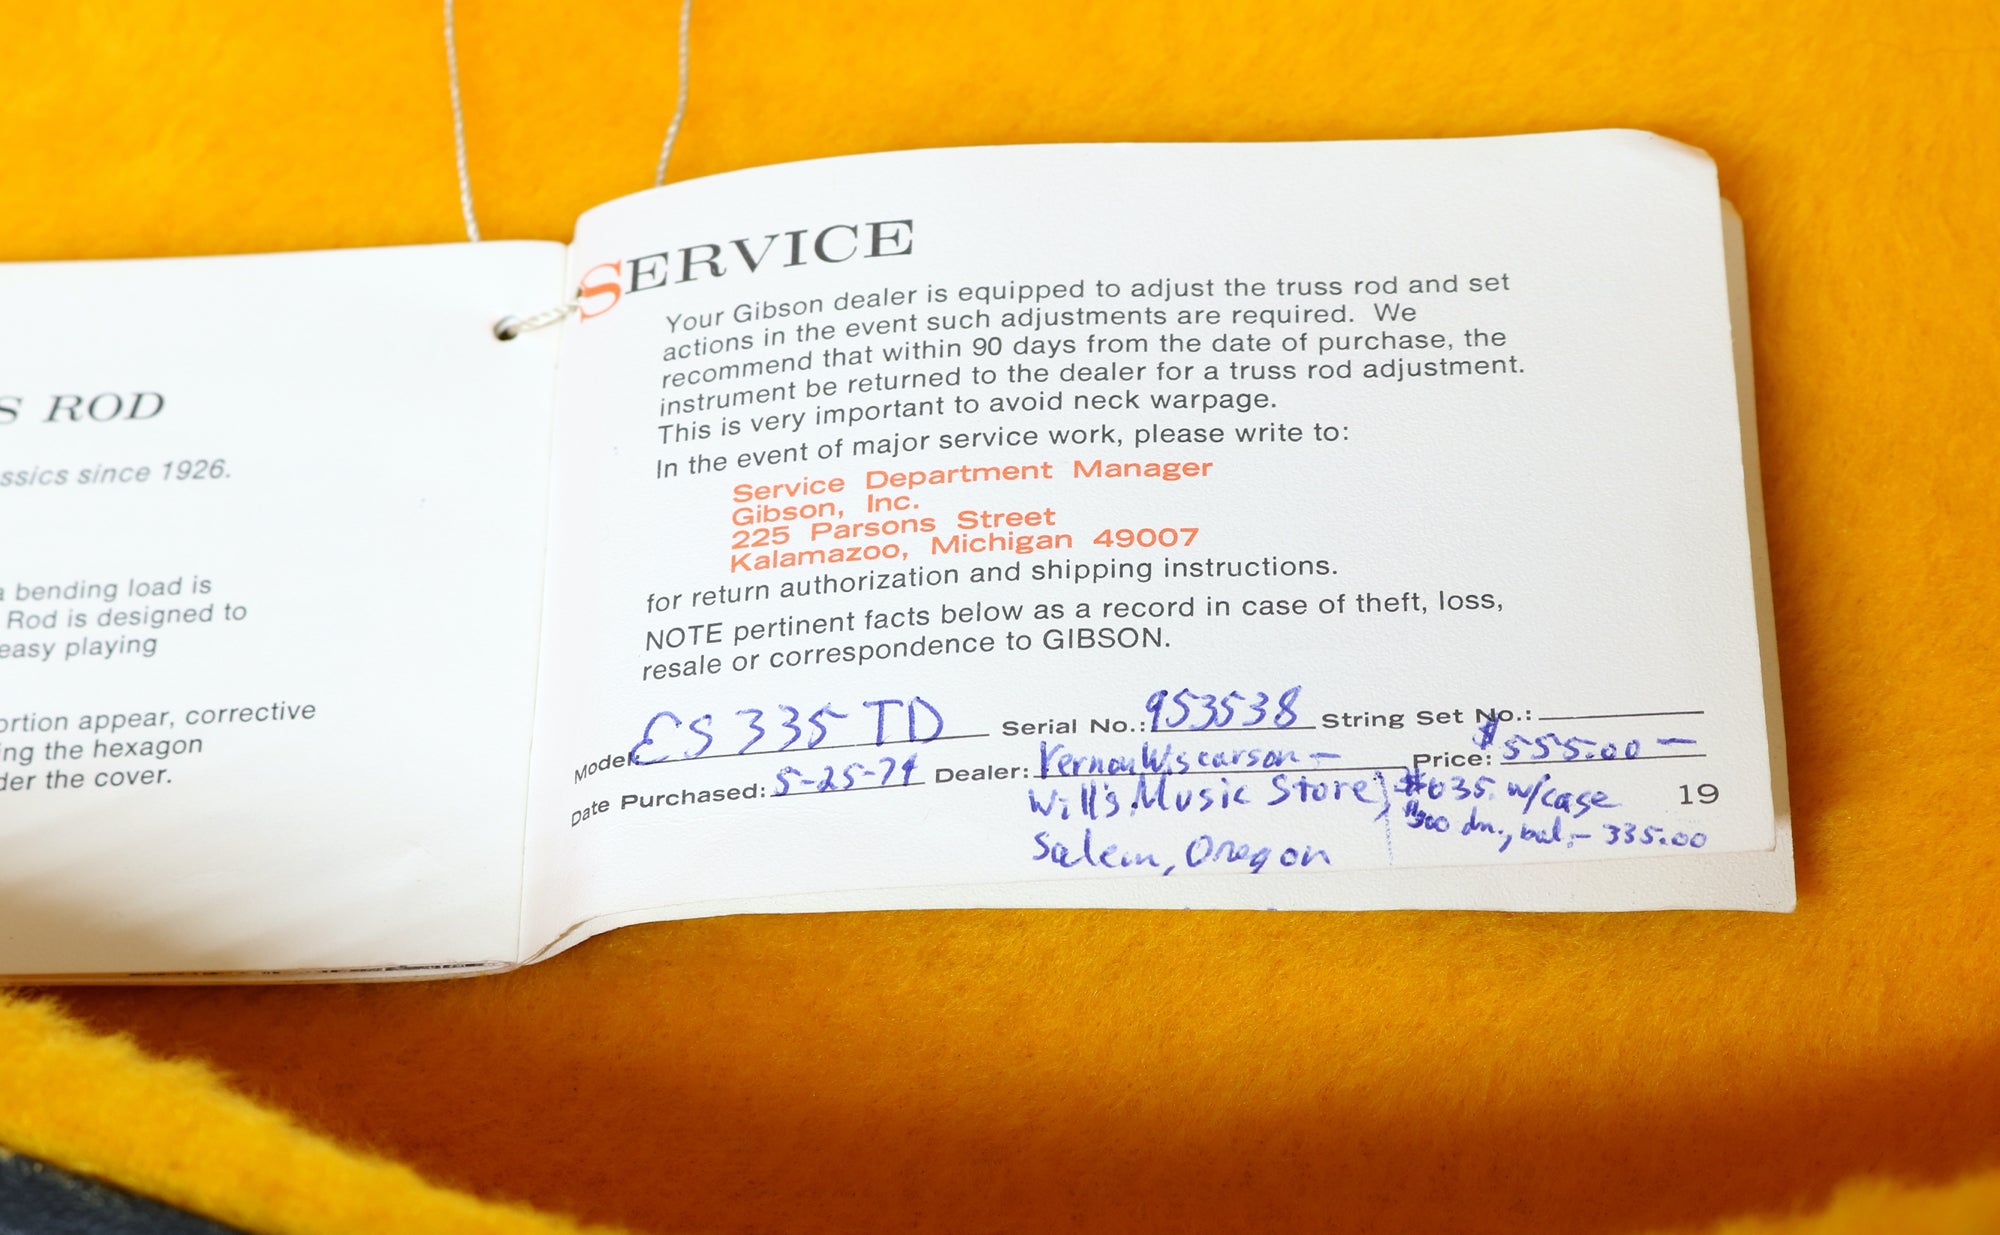 S ROD
ssics since 1926.
a bending load is
Rod is designed to
easy playing
ortion appear, corrective
ing the hexagon
der the cover.
SERVICE
Your Gibson dealer is equipped to adjust the truss rod and set
actions in the event such adjustments are required. We
recommend that within 90 days from the date of purchase, the
instrument be returned to the dealer for a truss rod adjustment.
This is very important to avoid neck warpage.
In the event of major service work, please write to:
Service Department Manager
Gibson, Inc.
225 Parsons Street
Kalamazoo, Michigan 49007
for return authorization and shipping instructions.
NOTE pertinent facts below as a record in case of theft, loss,
resale or correspondence to GIBSON.
Model: ES 335 TD Serial No.: 953538 String Set No.:
Date Purchased: 5-25-74 Dealer: Vernon Wiscarson – Price: $555.00 –
Will's Music Store, $635. w/case
Salem, Oregon $300 dn., bal. – 335.00
19